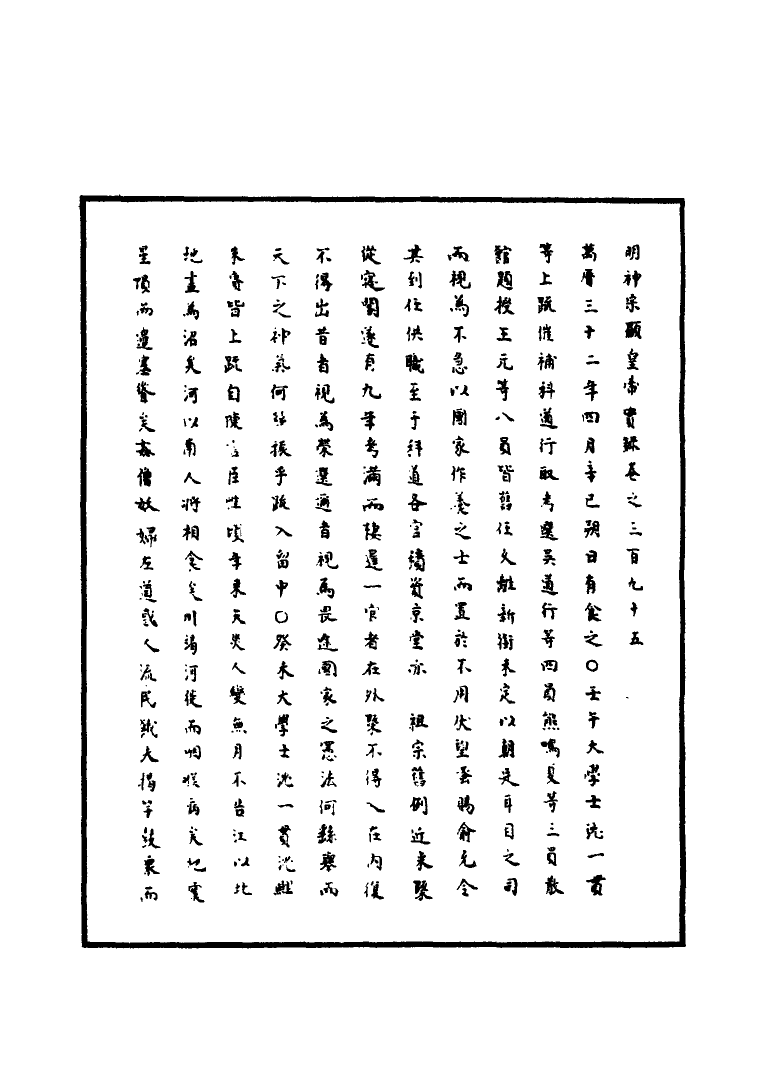 明神宗顯皇帝實錄卷之三百九十五
萬曆三十二年四月辛巳朔日有食之○壬午大學士沈一貫
等上疏催補科道行取考選吳道行等四員熊鳴夏等三員散
館題授王元等八員皆舊任久離新銜未定以朝廷耳目之司
而視為不急以國家作養之士而置於不用伏望蚤賜俞允令
其到任供職至于拜道各官積資京堂亦 祖宗舊例近來槩
從寢閣遂有九年考滿而陡遷一官者在外槩不得入在內復
不得出昔者視為榮選適者視為畏途國家之憲法何繇舉而
天下之神氣何繇振乎疏入留中○癸未大學士沈一貫沈鯉
朱賡皆上疏自陳言臣性頃年來天災人變無月不告江以北
地盡為沼矣河以南人將相食矣川竭河徙而咽喉病矣地震
星隕而邊塞聳矣姦僧妖婦左道惑人流民賊夫揭竿鼓眾而